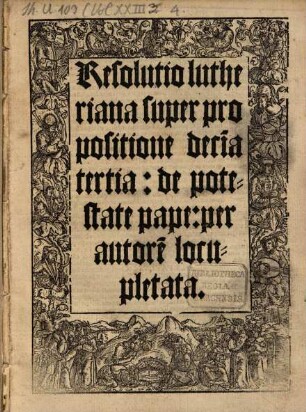 Th. U. 103 (Ul. XXIII 4.
Resolutio luthe
riana super pro
positione decĩa
tertia: de pote-
state pape: per
autorẽ locu-
pletata.
BIBLIOTHECA
REGIA
MONACENSIS